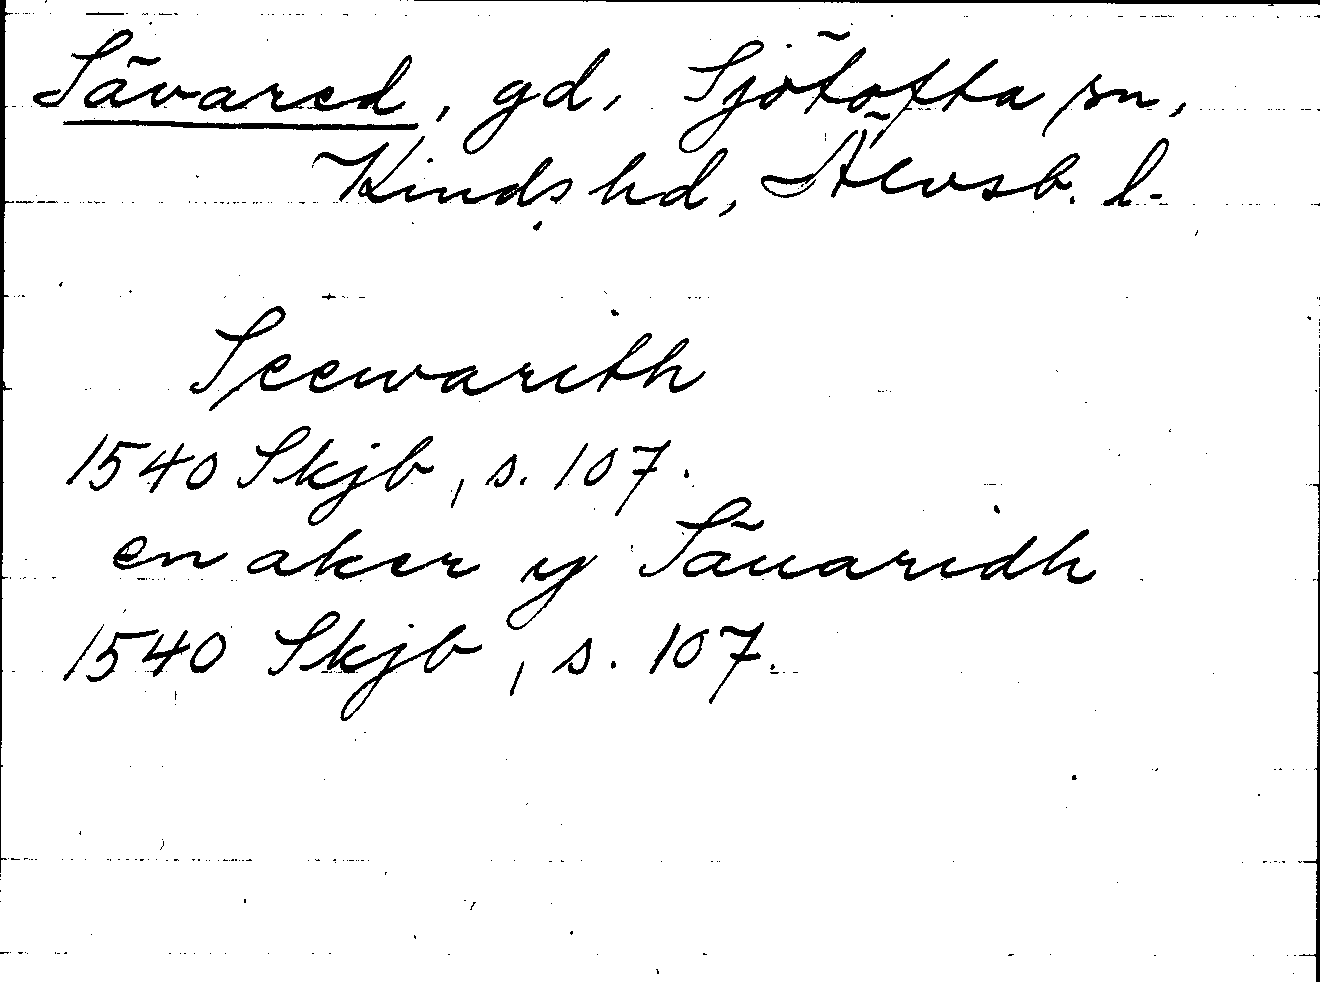 Sävared, gd, Sjötofta sn,
Kinds hd, Älvsb. l.
Seewarith
1540 Skjb, s. 107.
en aker y Säuaridh
1540 Skjb, s. 107.